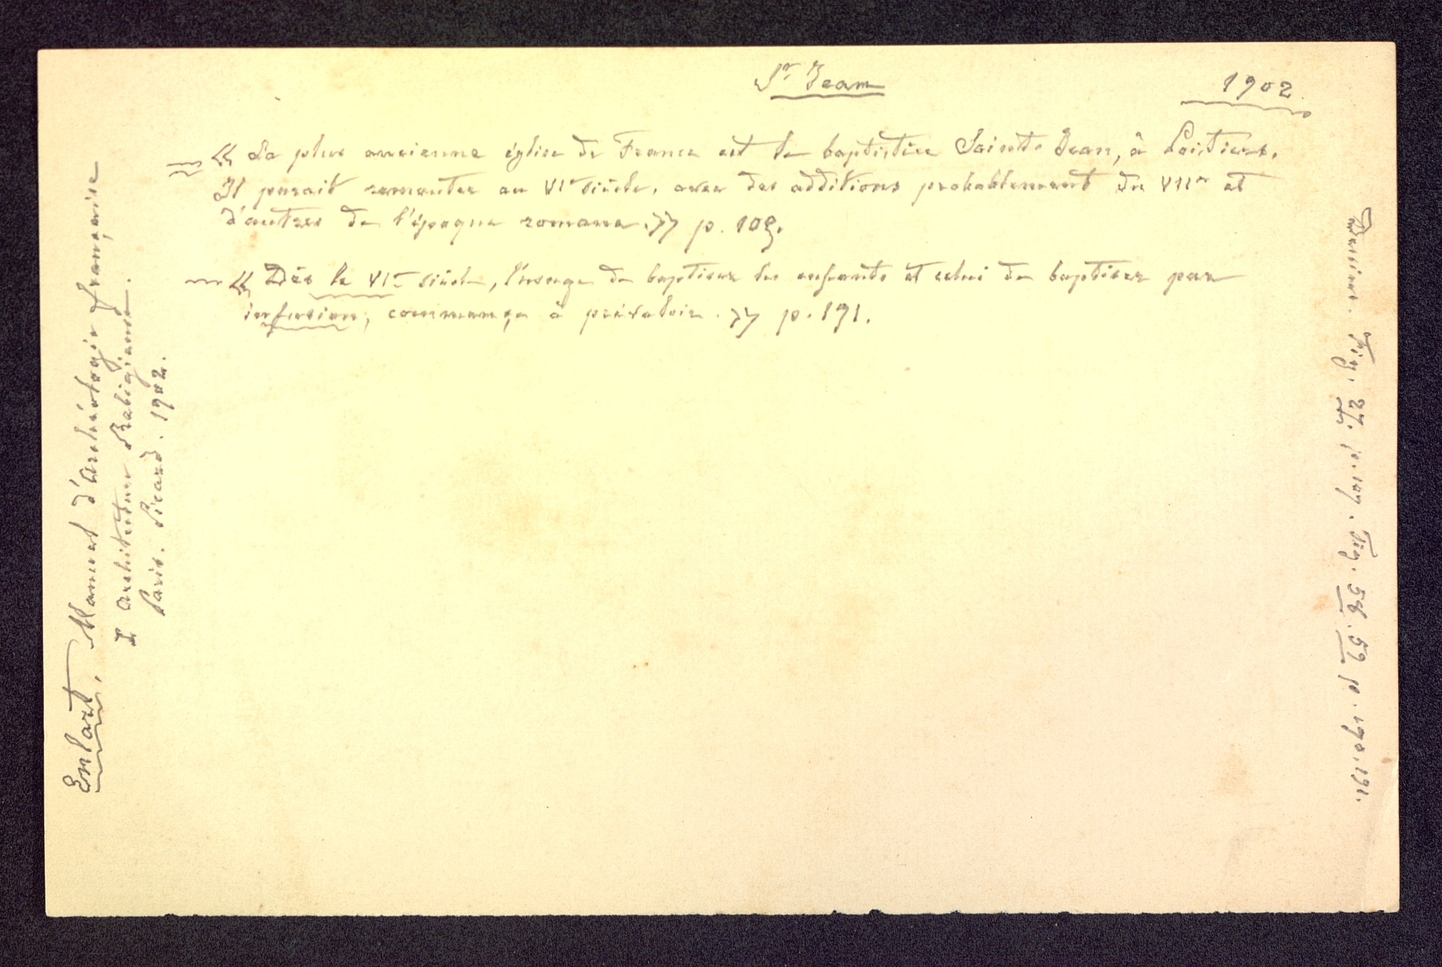 St Jean
1902.
« La plus ancienne église de France est le baptistère Sainte Jean, à Poitiers.
Il parait remonter au VIe siècle, avec des additions probablement du VIIe et
d'autres de l'époque romane. » p. 109.
« Dès le VIe siècle, l'usage de baptiser les enfants et celui de baptiser par
infusion, commença à prévaloir. » p. 191.
Enlart. Manuel d'archéologie française
I Architecture Religieuse.
Paris. Picard. 1902.
Dessins. Fig. 27. p. 107. Fig. 58. 59 p. 190.191.